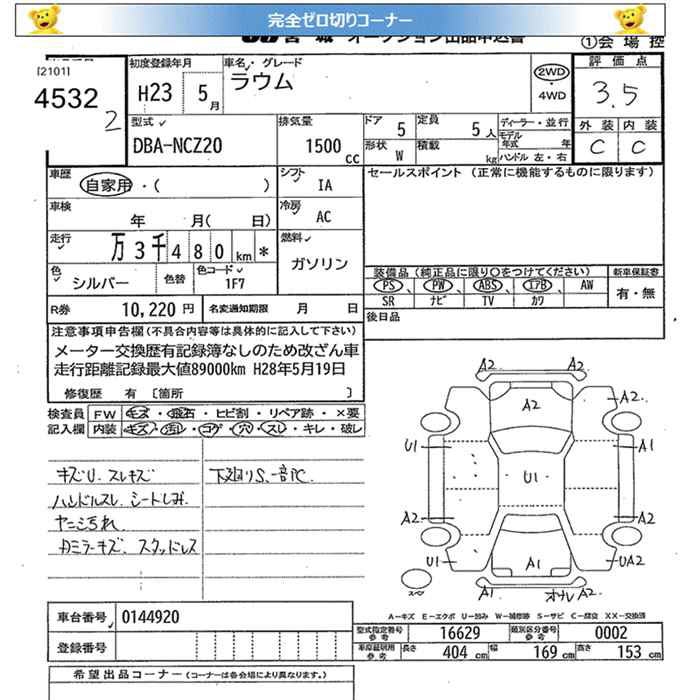 完全ゼロ切りコーナー
宮城 オークション出品申込書
①会場控
[2101]
4532
2
初度登録年月
H23 5月
車名 グレード
ラウム
2WD
・
4WD
評価点
3.5
外装 内装
C C
型式
DBA-NCZ20
排気量
1500 CC
ドア 5
定員 5人
形状 W
積載 kg
ディーラー・並行
モデル年式 年
ハンドル 左・右
車歴
自家用・( )
シフト IA
セールスポイント (正常に機能するものに限ります)
車検
年 月( 日)
冷房 AC
走行
万3千480km *
燃料
ガソリン
色 シルバー
色替
色コード 1F7
装備品 (純正品に限り○をつけてください)
PS、PW、ABS、エアB、AW
SR ナビ TV カワ
新車保証書
有・無
R券 10,220円
名変通知期限 月 日
後日品
注意事項申告欄 (不具合内容等は具体的に記入して下さい)
メーター交換歴有記録簿なしのため改ざん車
走行距離記録最大値89000km H28年5月19日
修復歴 有 [箇所 ]
検査員 FW キズ・飛石・ヒビ割・リペア跡・×要
記入欄 内装 キズ・汚レ・コゲ・穴・スレ・キレ・破レ
キズU、スレキズ
ハンドルスレ、シートしみ
ヤニ汚れ
カミラーキズ、スタッドレス
下廻りS、一部C
A2
A2
A2
A2
U1
A1
U1
A2
A2
U1
A1
UA2
A1
オナレ A2
スペ
A-キズ E-エクボ U-凹み W-補修跡 S-サビ C-腐食 XX-交換済
車台番号 0144920
登録番号
型式指定番号 参考 16629
類別区分番号 参考 0002
車庫証明用 参考 長さ 404 cm 幅 169 cm 高さ 153 cm
希望出品コーナー (コーナーは各会場により異なります。)